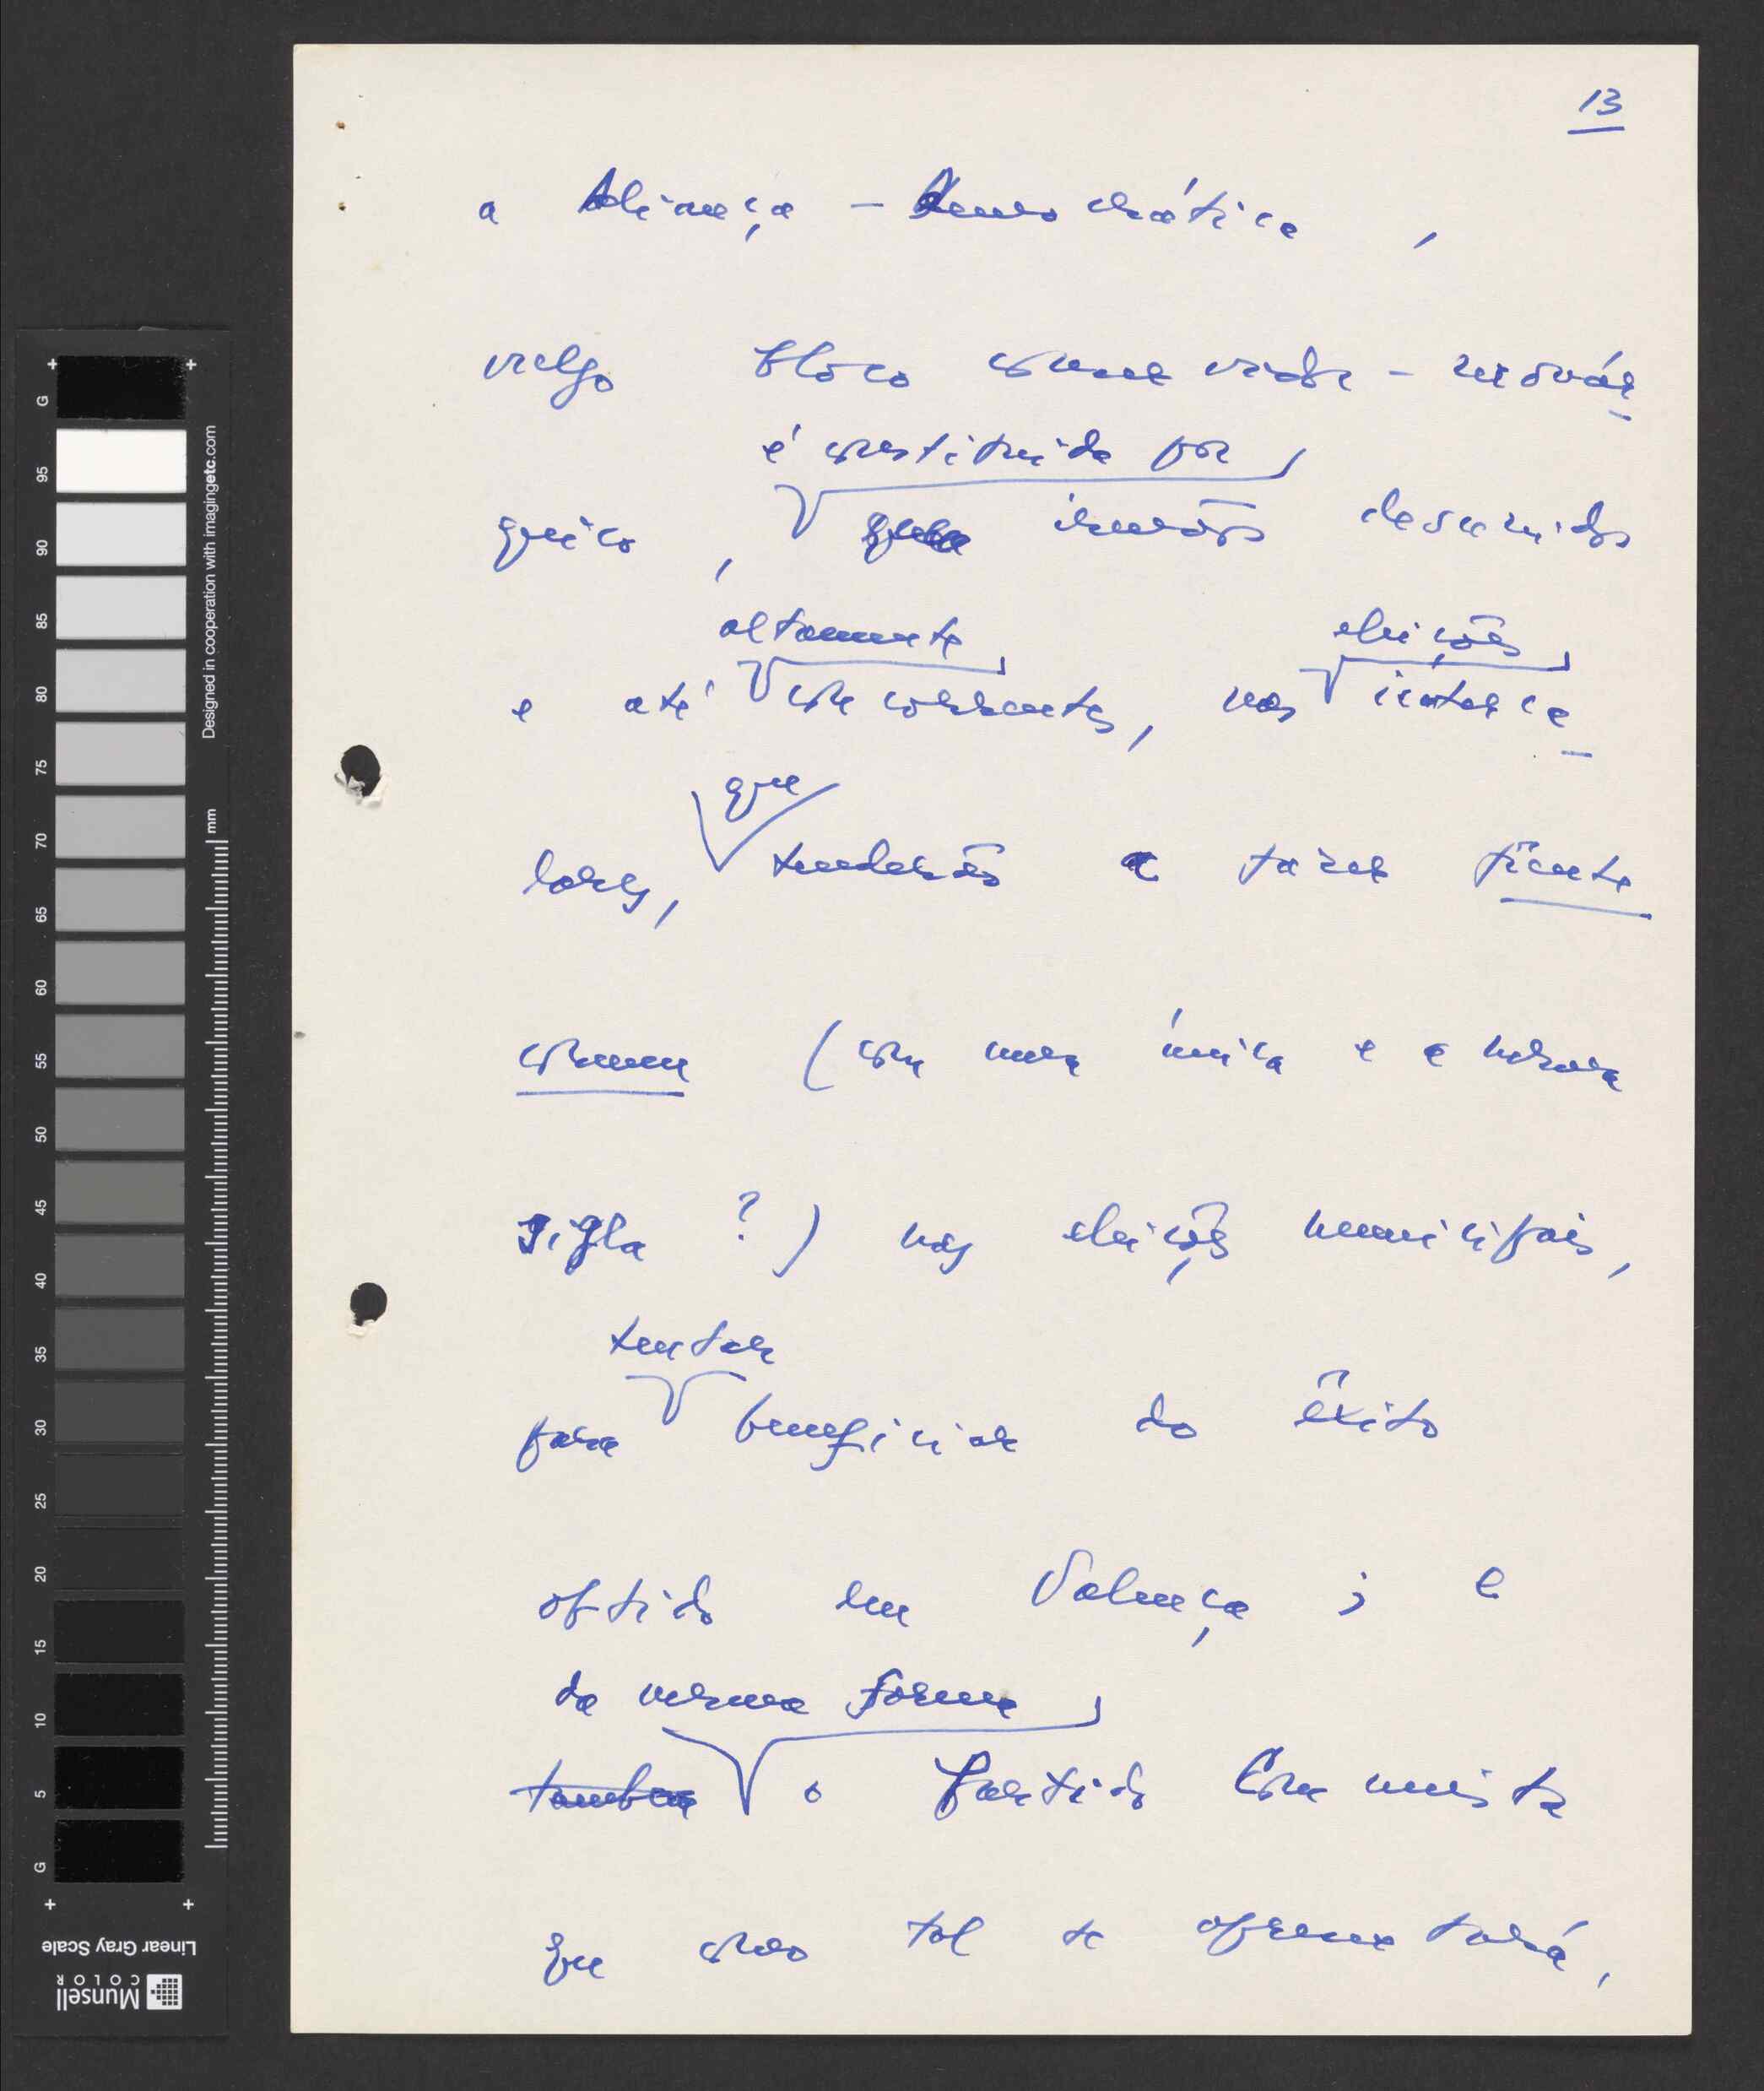 13
a Aliança - Democrática ,
vulgo bloco conservador - monár-
é constituida por
quico , irmãos desunidos
altamente eleições
e até concorrentes, nas interca-
que
lares, tenderão a fazer frente
comum (com uma única e a mesma
sigla ? ) nas eleições municipais,
tentar
para beneficiar do êxito
obtido em Valença ; e
da mesma forma
também o Partido Comunista
que como tal se apresentará,
G 95 90 85 80 75 70 65 60 55 50 45 40 35 30 25 20 15 10 5 G
Designed in cooperation with imagingetc.com
mm
Linear Gray Scale
Munsell
COLOR